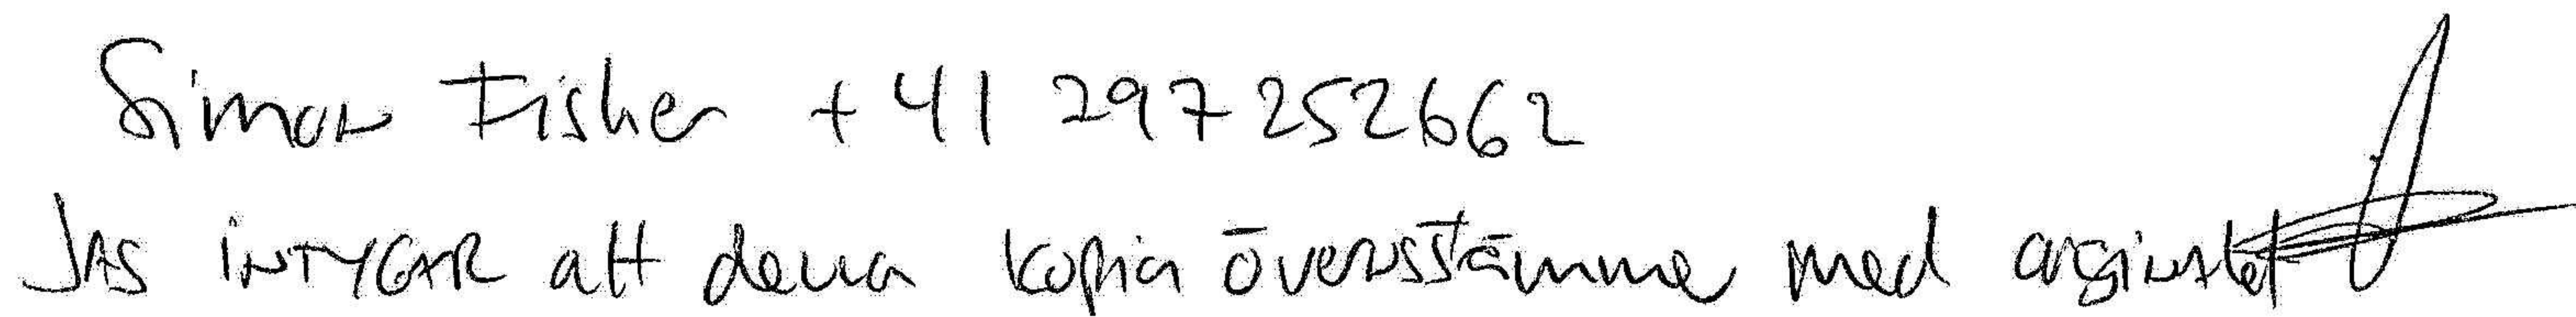 Simon Fisher +41 297 252662
JAG INTYGAR att denna kopia överensstämmer med originalet